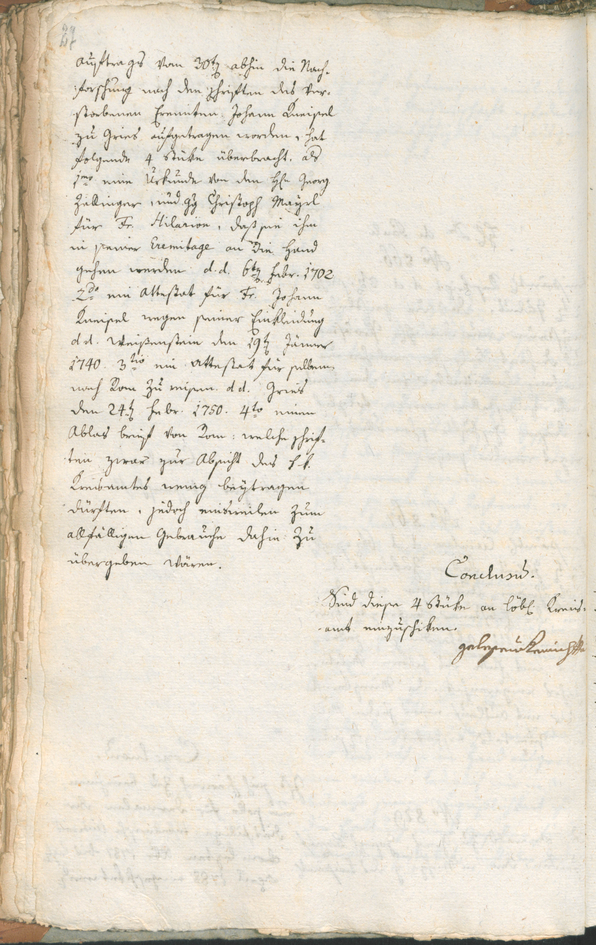 27
Auftrags vom 30t abhin die Nach-
forschung nach den Schriften des ver-
storbenen Eremiten Johann Kneisel
zu Gries aufgetragen worden, hat
folgende 4 Stüke überbracht, als
1mo eine Urkunde von den H. Georg
Zällinger, und Christoph Mayrl
für Fr. Hilarion, daß sie ihm
in seiner Eremitage an die Hand
gehen werden d.d. 6t Febr. 1702
2do ein Attestat für Fr. Johann
Kneisel wegen seiner Einkleidung
d.d. Weißenstein den 19t Jänner
1740. 3tio ein Attestat für selben
nach Rom zu reisen d.d. Gries
den 24t Febr. 1750. 4to einen
Ablas brief von Rom: welche schrif-
ten zwar zur Absicht des k.k.
Kreisamtes wenig beytragen
dürften, jedoch einsweilen zum
allfälligen Gebrauche dahin zu
übergeben wären.
Conclusum.
Sind diese 4 Stüke an löbl. Kreis-
amt einzuschiken.
gelesen